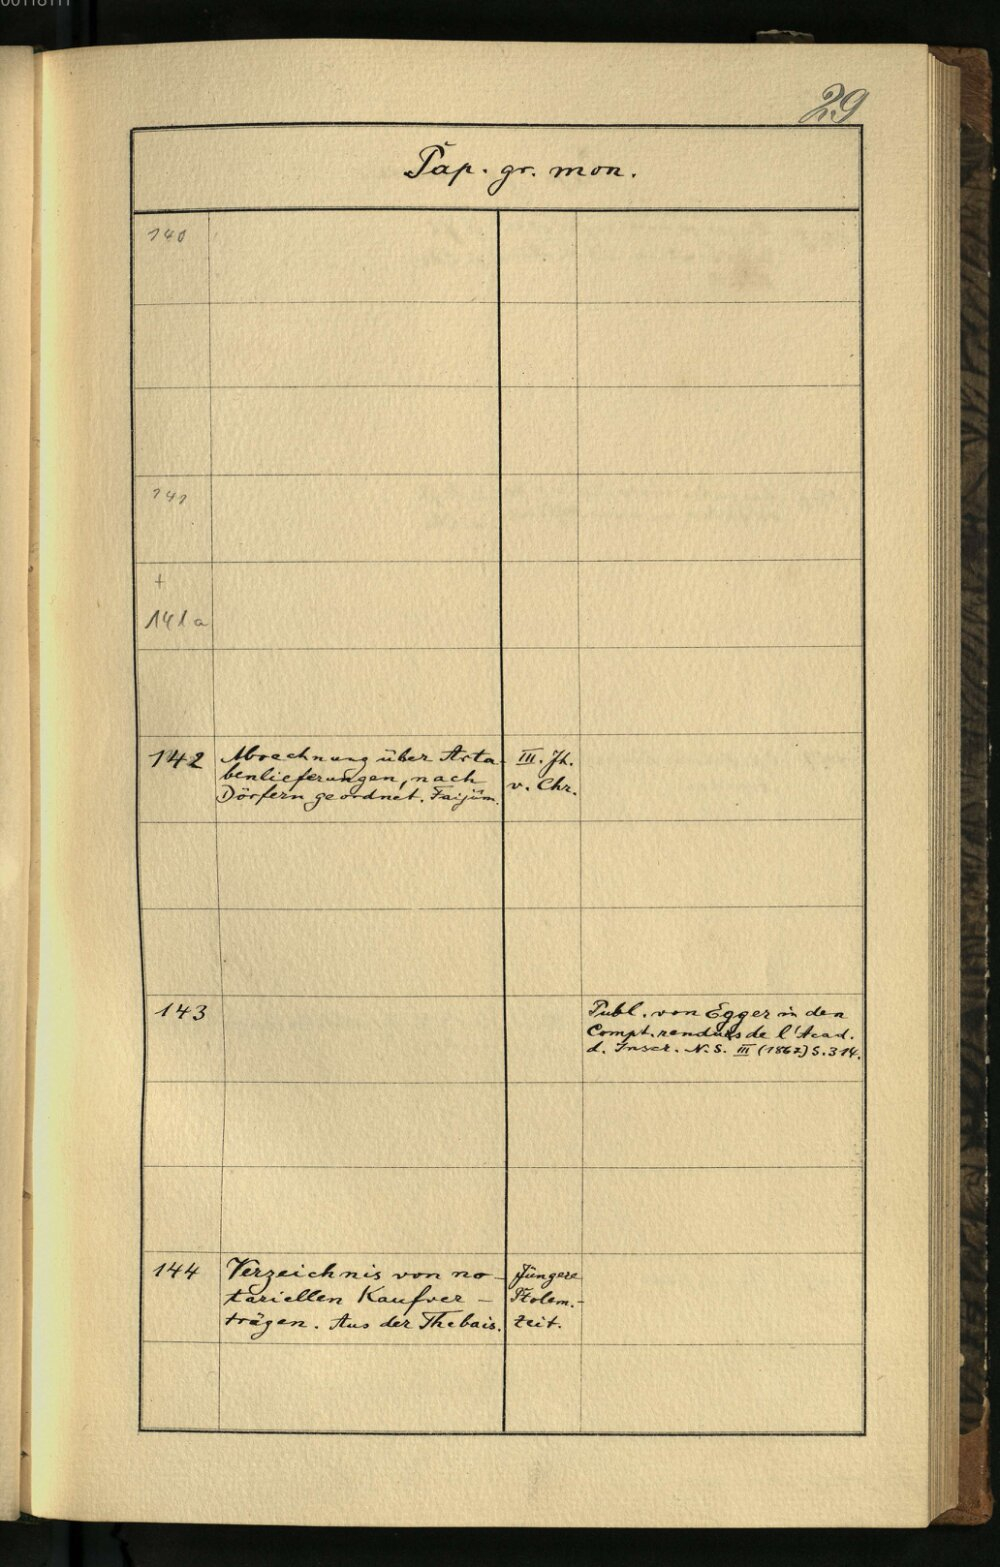 00118111
29
Pap. gr. mon.
140
141
+
141a
142 Abrechnung über Arta- III. Jh.
benlieferungen, nach v. Chr.
Dörfern geordnet. Faijûm.
143 Publ. von Egger in den
Compt. rendus de l'Acad.
d. Inscr. N. S. III (1867) S. 314.
144 Verzeichnis von no- Jüngere
tariellen Kaufver- Ptolem.-
trägen. Aus der Thebais. zeit.